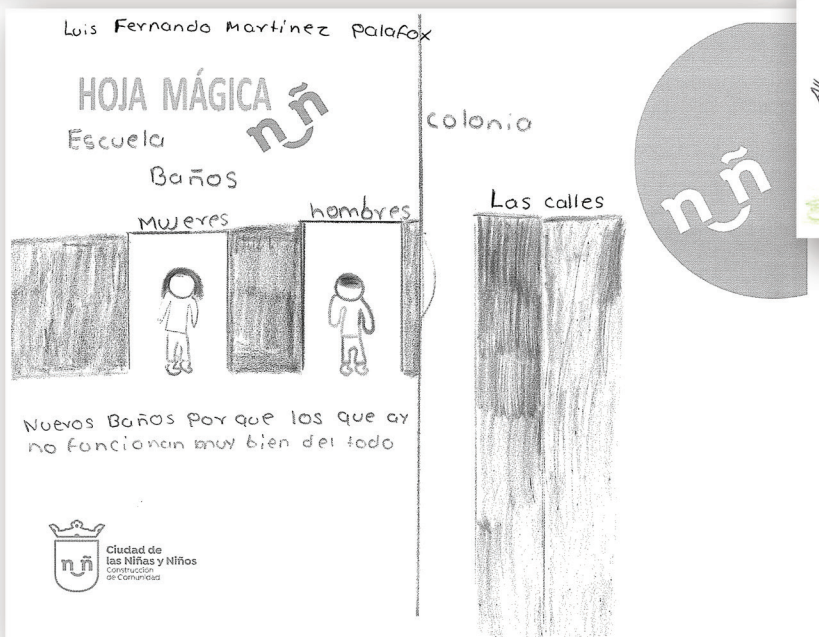 Luis Fernando Martínez Palafox
HOJA MÁGICA
nñ
Escuela
Baños
Mujeres
hombres
Nuevos Baños Por que los que ay
no funcionan muy bien del todo
nñ
Ciudad de
las Niñas y Niños
Construcción
de Comunidad
colonia
Las calles
nñ